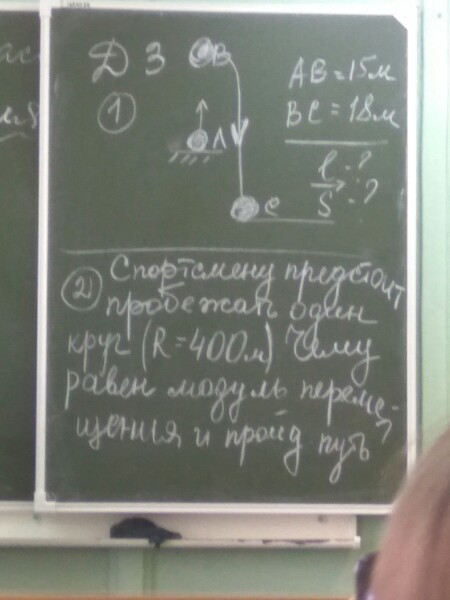 ДЗ
① B
A
C
AB = 15м
BC = 18м
l - ?
S - ?
② Спортсмену предстоит
пробежать один
круг (R = 400м) Чему
равен модуль переме-
щения и пройд путь?